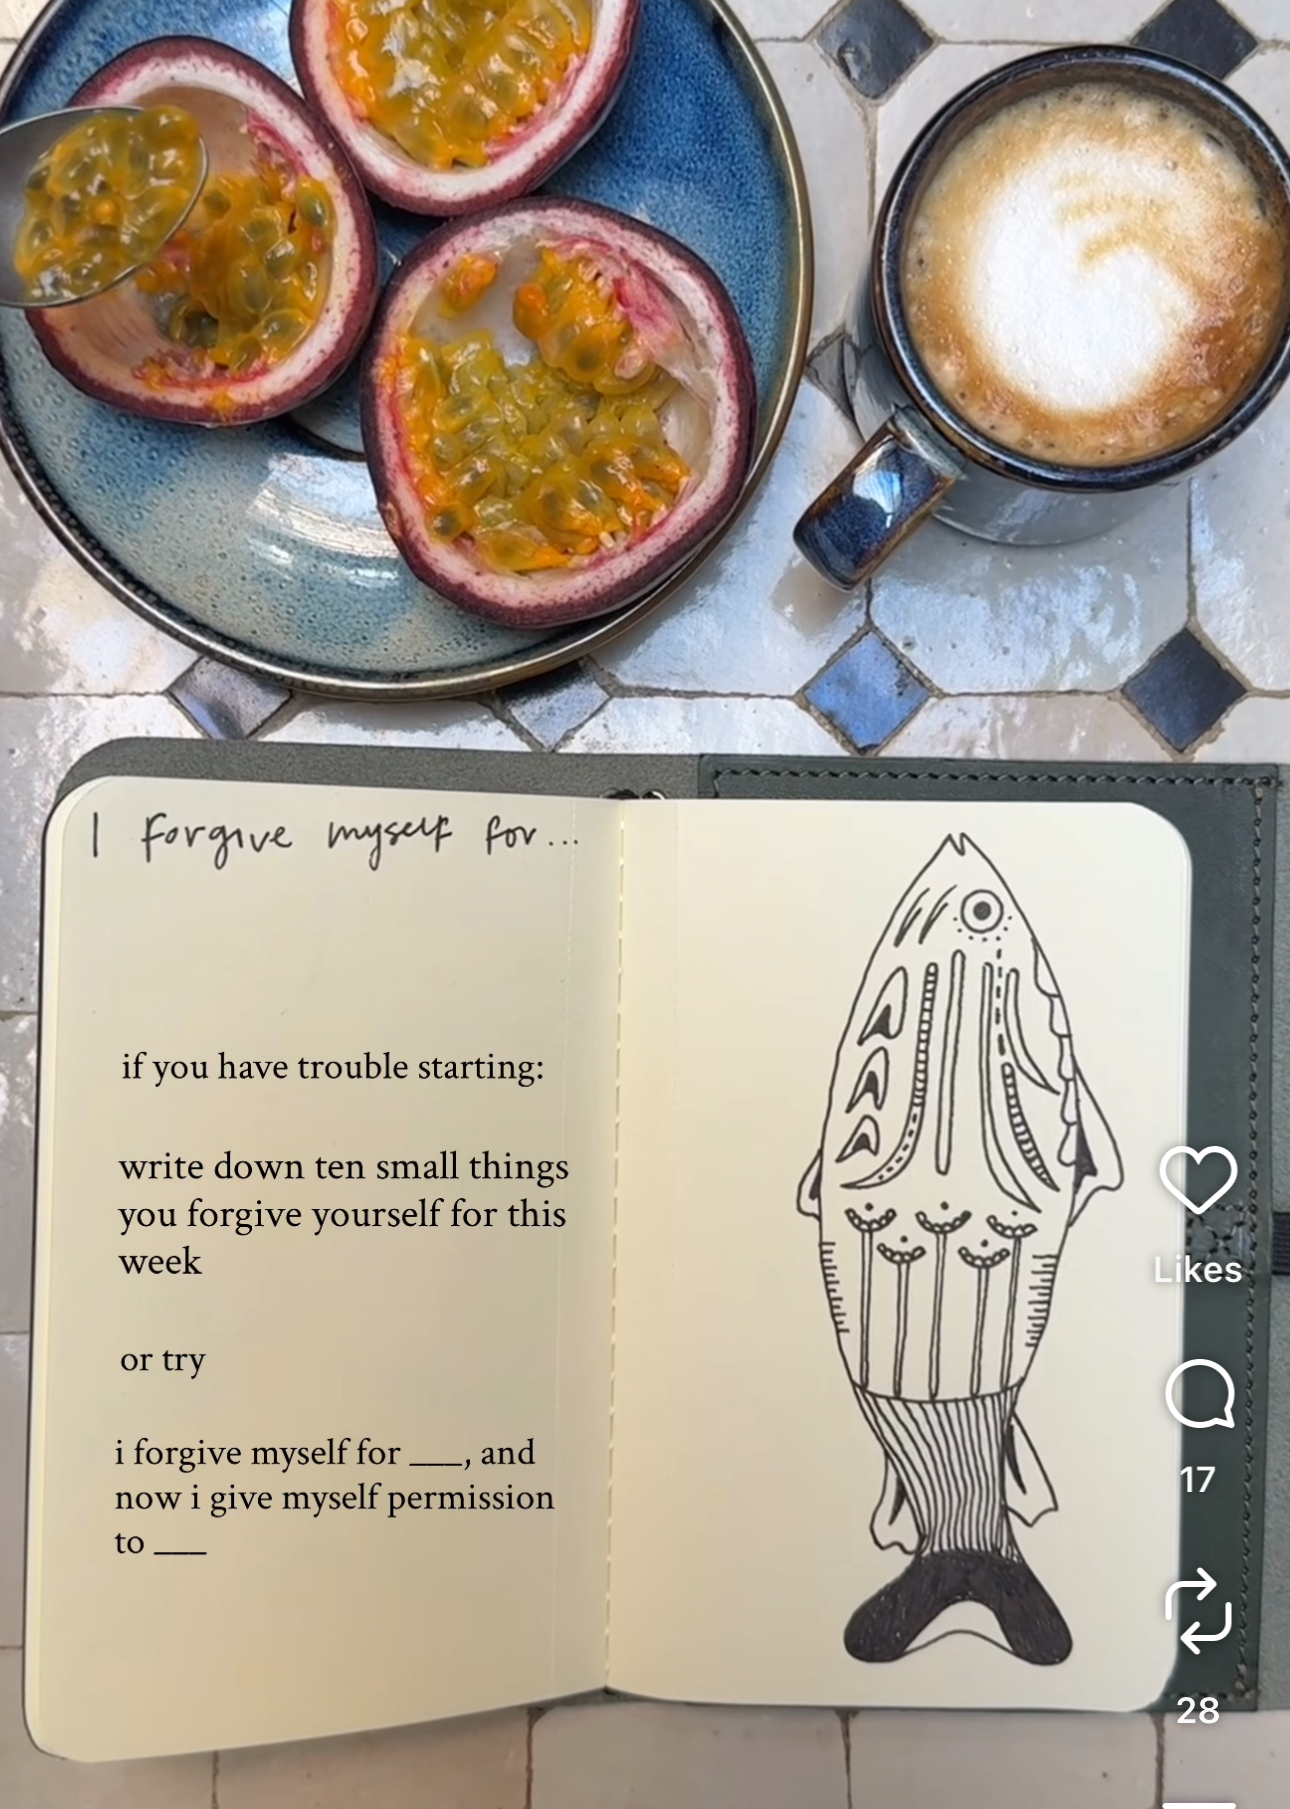 I forgive myself for...
if you have trouble starting:
write down ten small things
you forgive yourself for this
week
or try
i forgive myself for ___, and
now i give myself permission
to ___
Likes
17
28